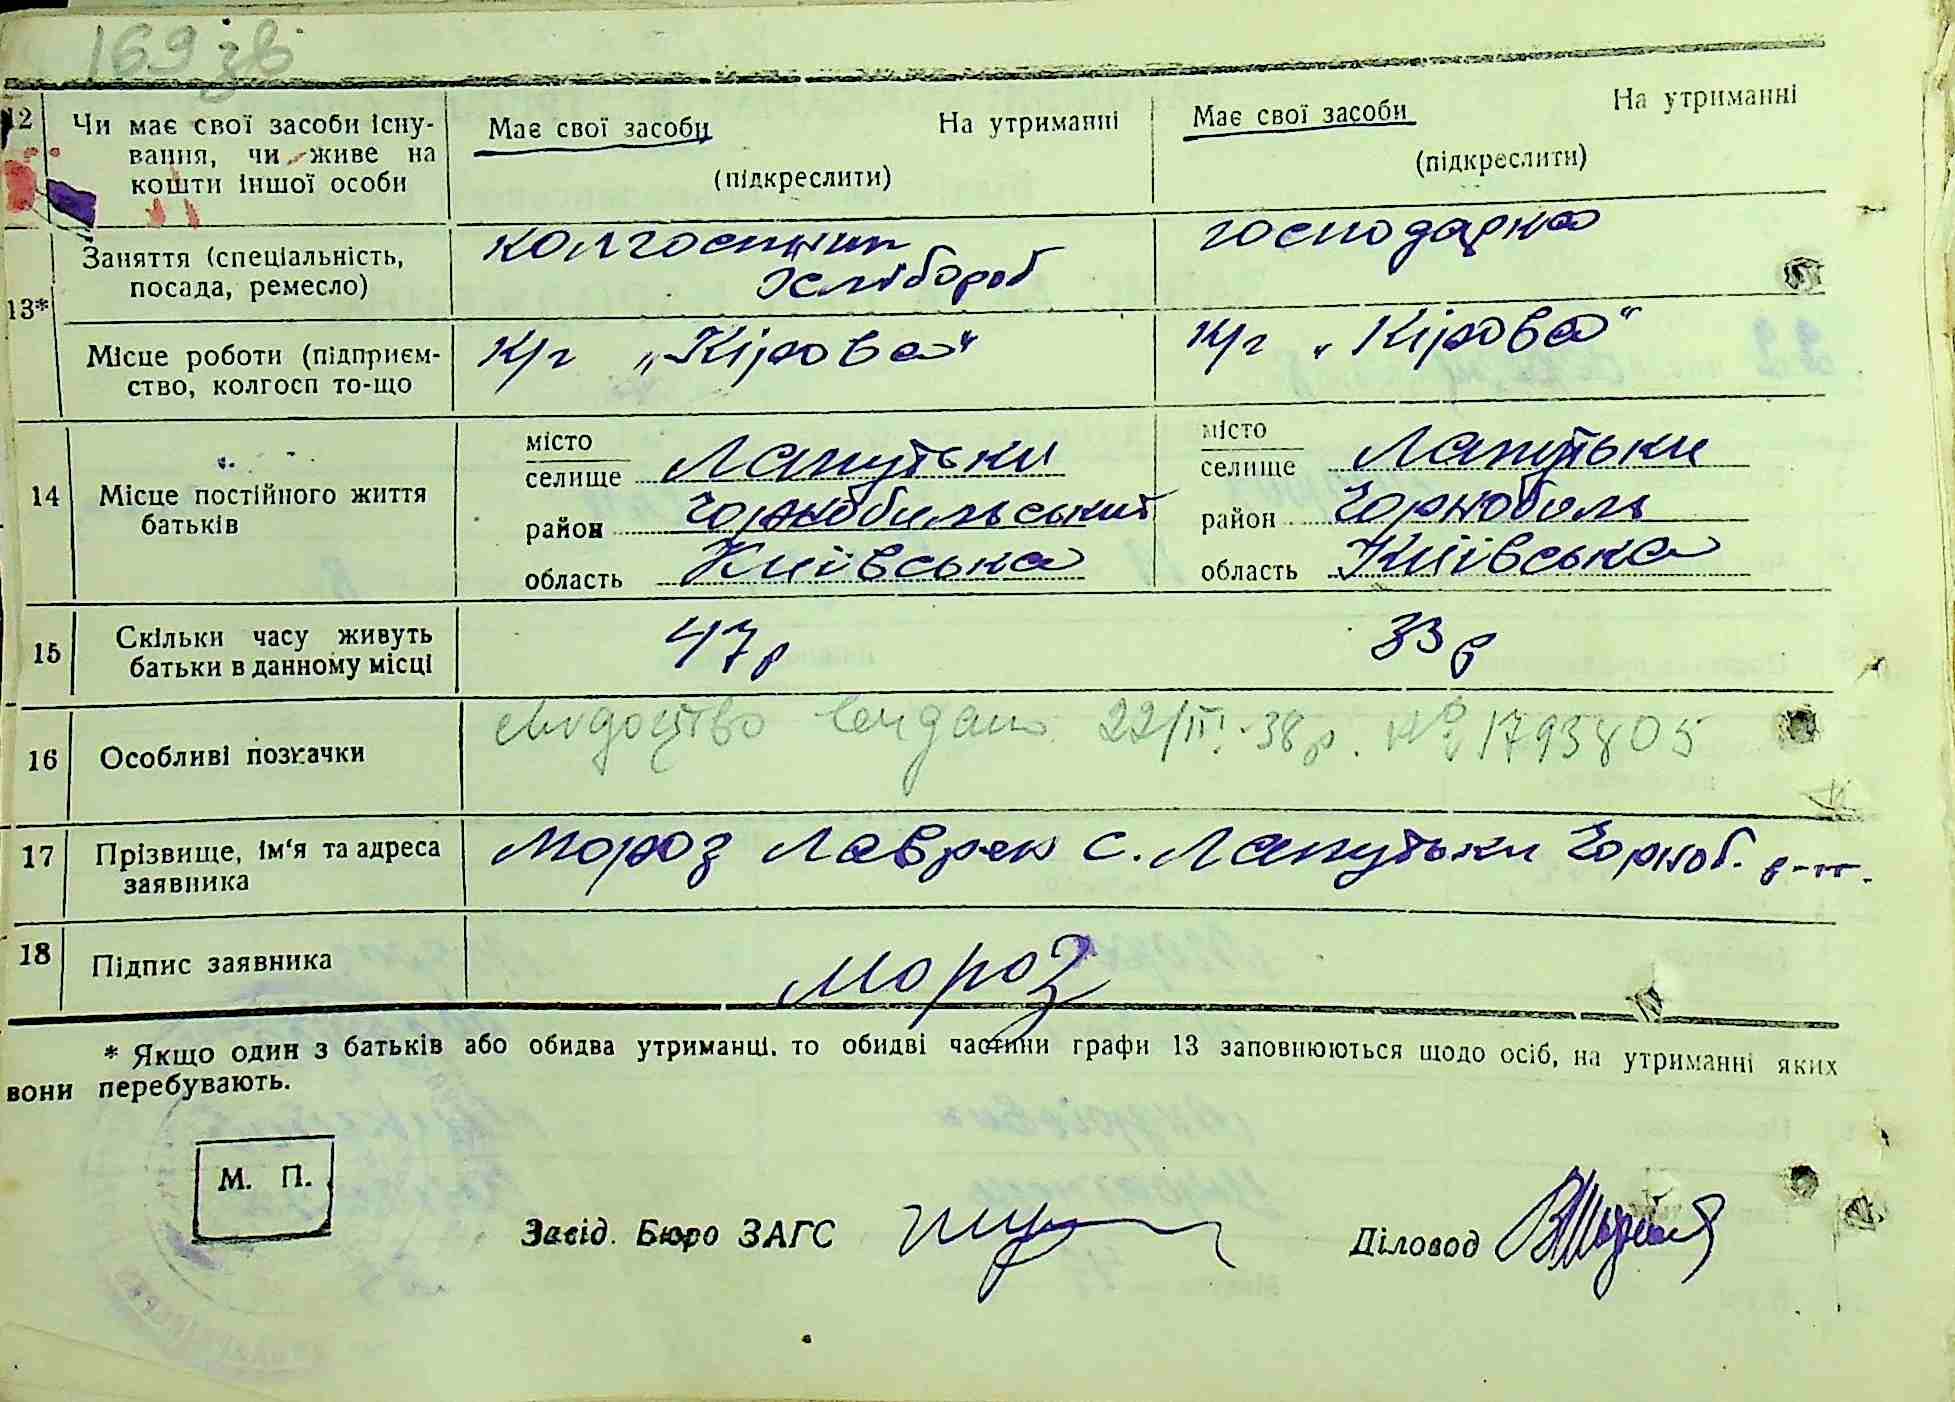 169 зв
12 Чи має свої засоби існу- Має свої засоби На утриманні Має свої засоби На утриманні
вання, чи живе на
кошти іншої особи (підкреслити) (підкреслити)
13* Заняття (спеціальність, колгоспник господарка
посада, ремесло) хлібороб
Місце роботи (підприєм- к/г „Кірова" к/г „Кірова"
ство, колгосп то-що
14 Місце постійного життя батьків
місто місто
селище Лапутьки селище Лапутьки
район Чорнобильський район Чорнобиль
область Київська область Київська
15 Скільки часу живуть 47 р 33 р
батьки в данному місці
16 Особливі позначки видано 22/III-38 р. № 1793805
17 Прізвище, ім'я та адреса Мороз Лаврен с. Лапутьки Чорноб. р-н.
заявника
18 Підпис заявника Мороз
* Якщо один з батьків або обидва утриманці, то обидві частини графи 13 заповнюються щодо осіб, на утриманні яких
вони перебувають.
М. П.
Завід. Бюро ЗАГС Діловод